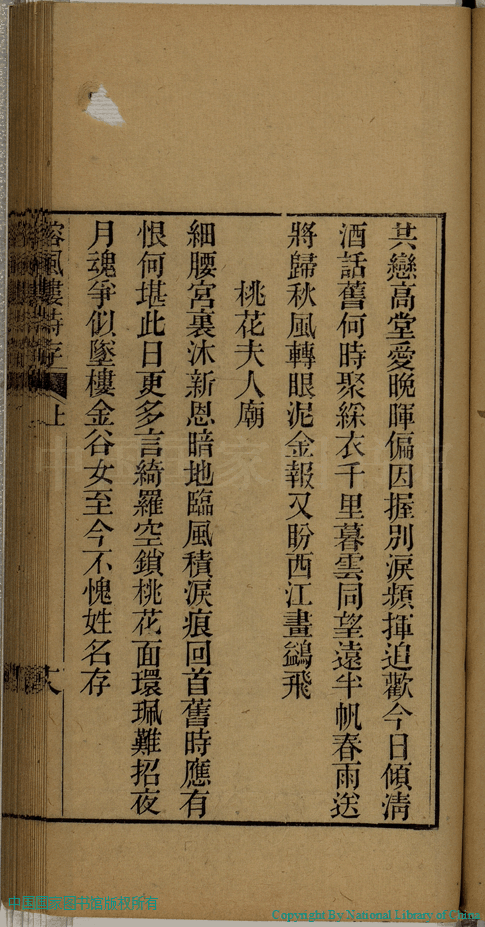 共戀高堂愛晚暉偏因握別淚頻揮追歡今日傾清
酒話舊何時聚綵衣千里暮雲同望遠半帆春雨送
將歸秋風轉眼泥金報又盼西江畫鷁飛
桃花夫人廟
細腰宮裏沐新恩暗地臨風積淚痕回首舊時應有
恨何堪此日更多言綺羅空鎖桃花面環珮難招夜
月魂爭似墜樓金谷女至今不愧姓名存
樓詩存 上
中国国家图书馆版权所有
Copyright By National Library of China